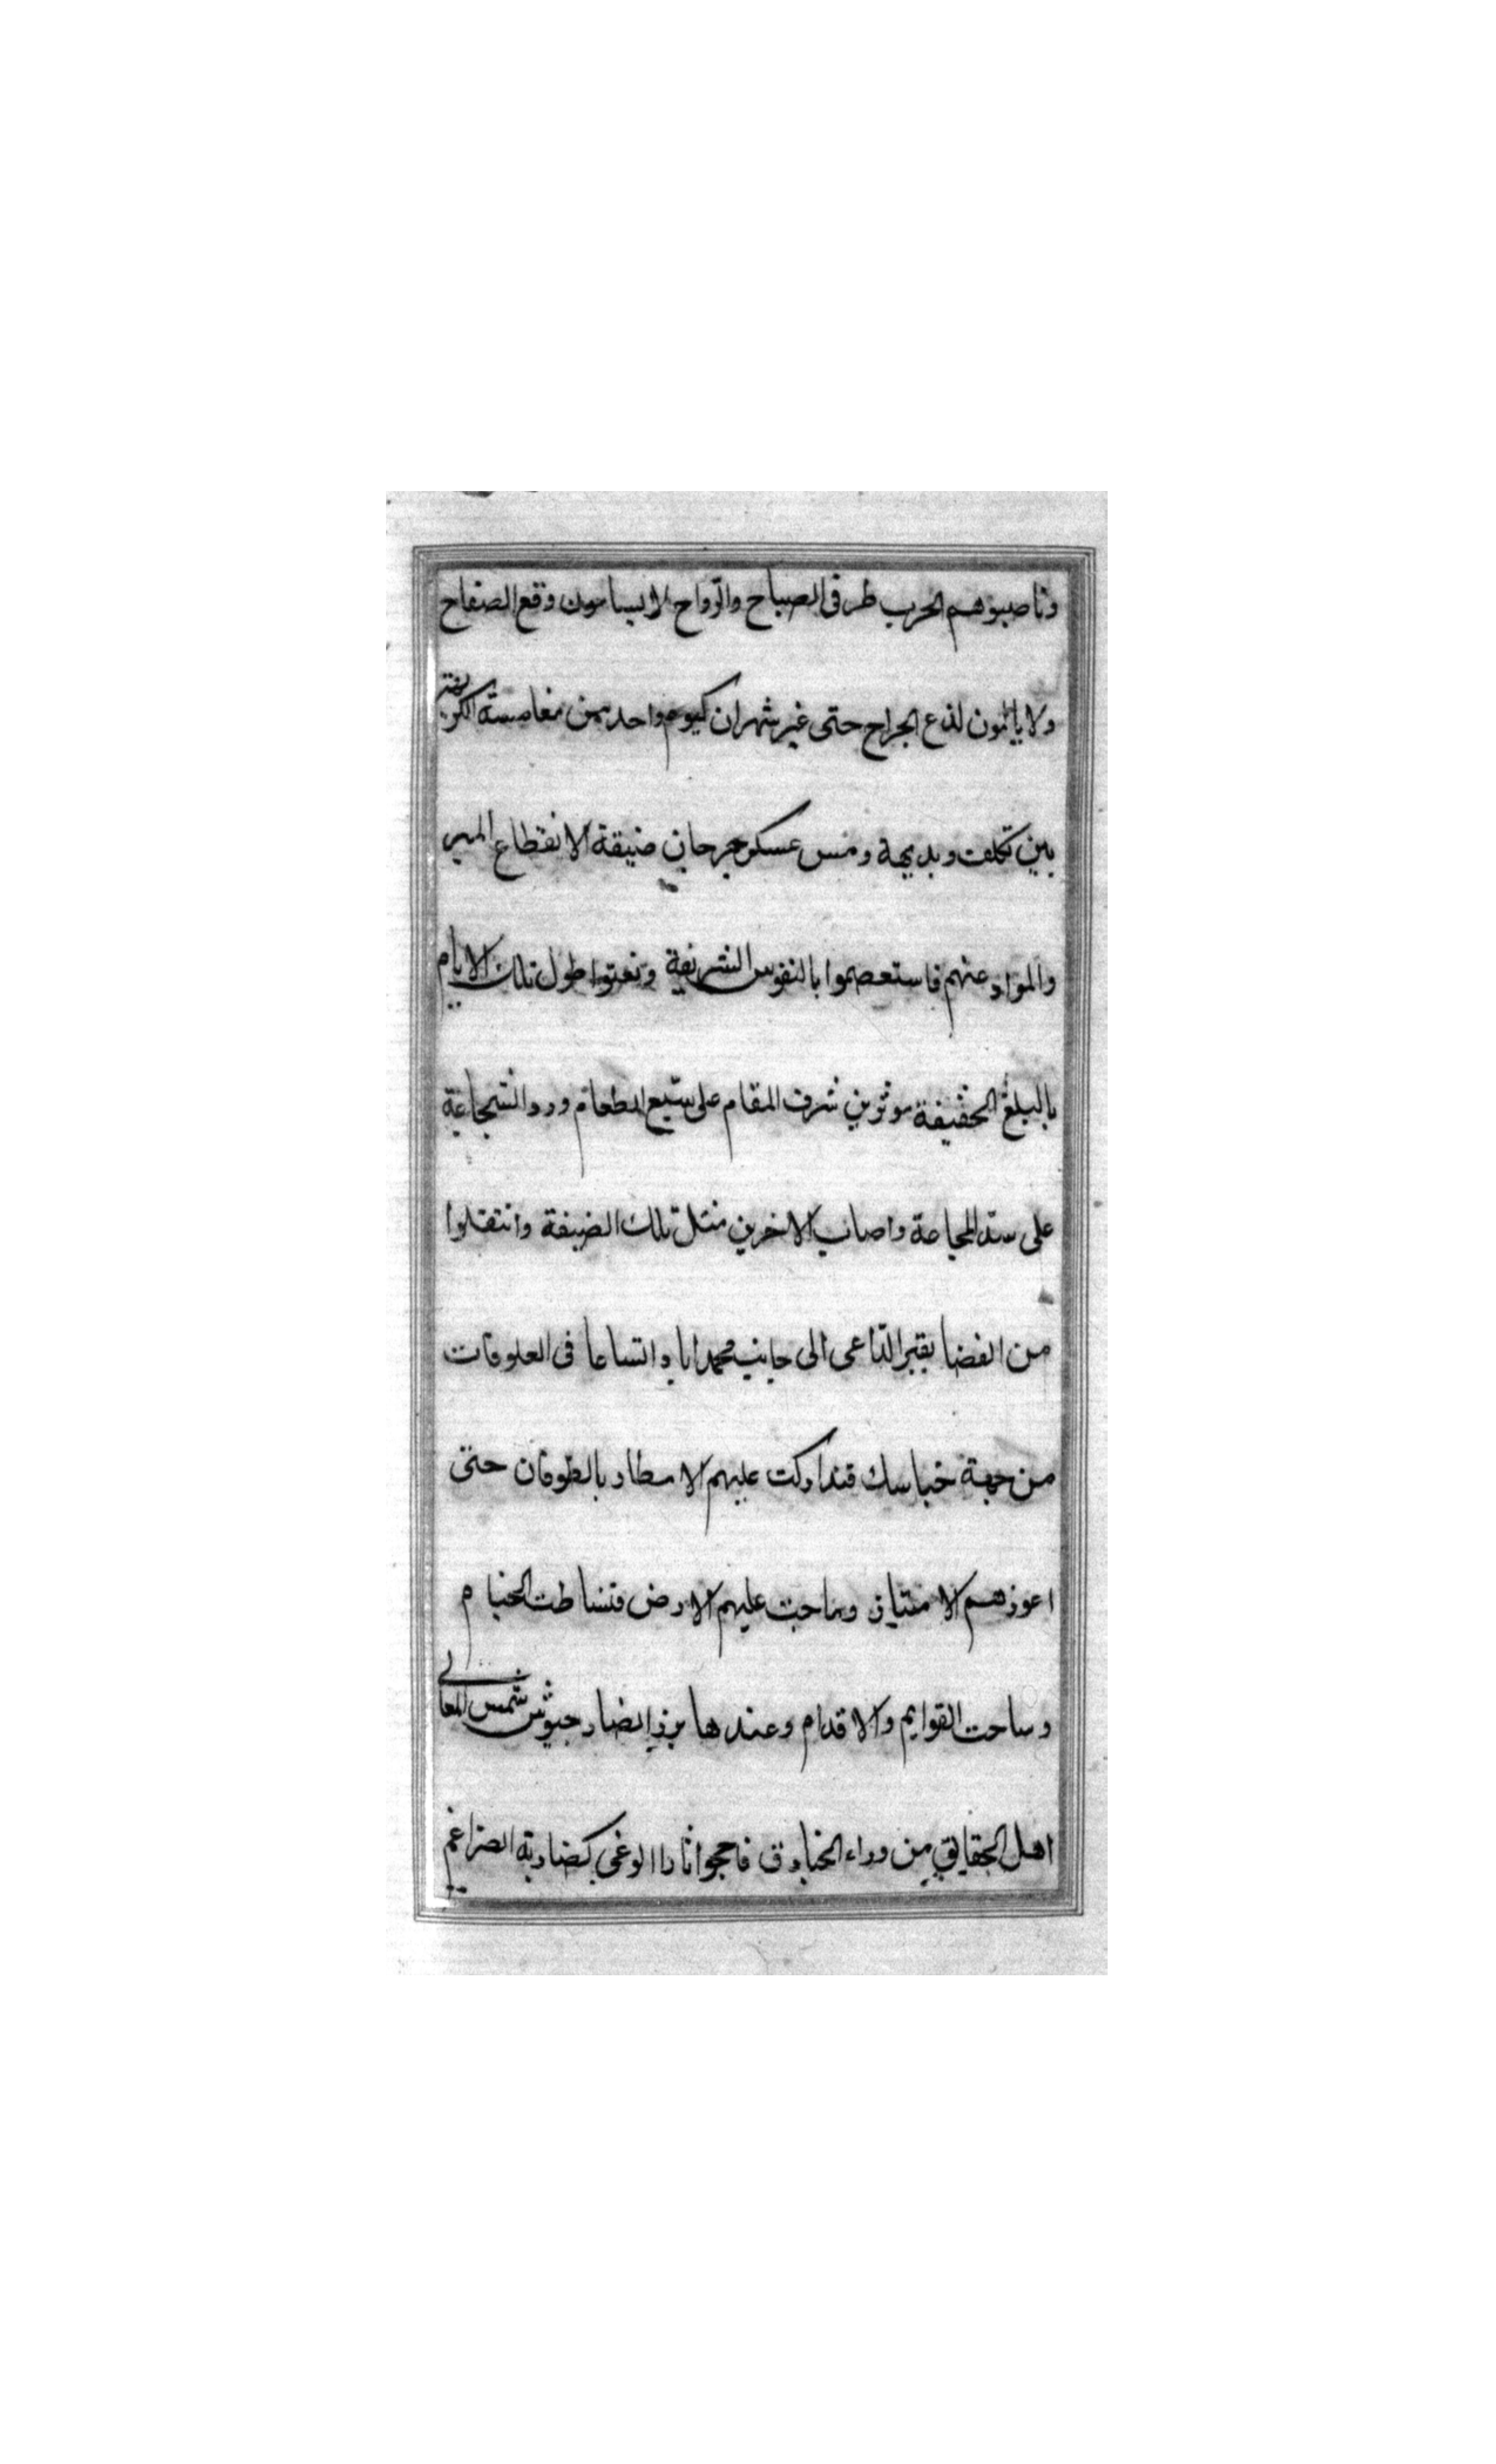 وناصبوهم الحرب طرفى الصباح والرواح لا يسامون وقع الصفاح
ولا يالمون لذع الجراح حتى غبر شهران كيوم واحد من مغامسة الكريهتين
بين تكلف وبديهة ومس عسكر جرجان ضيقة لانقطاع المير
والمواد عنهم فاستعصموا بالنفوس الشريفة وتعنوا طول تلك الايام
بالبلغ الخفيفة موثرين شرف المقام على شبع الطعام ورد الشجاعة
على سد المجاعة واصاب الاخرين مثل تلك الضيفة وانتقلوا
من الفضا بقبر الداعى الى جانب محمد اباد اتساعا فى العلوفات
من جهة خباسك فتداركت عليهم الامطار بالطوفان حتى
اعوزهم الامتيار وماجت عليهم الارض فتساطت الخيام
وساحت القوايم والاقدام وعندها برز انصار جيوش شمس المعالى
اهل الحقايق من وراء الخنادق فاججوا نارا الوغى كضاربة الضراغم